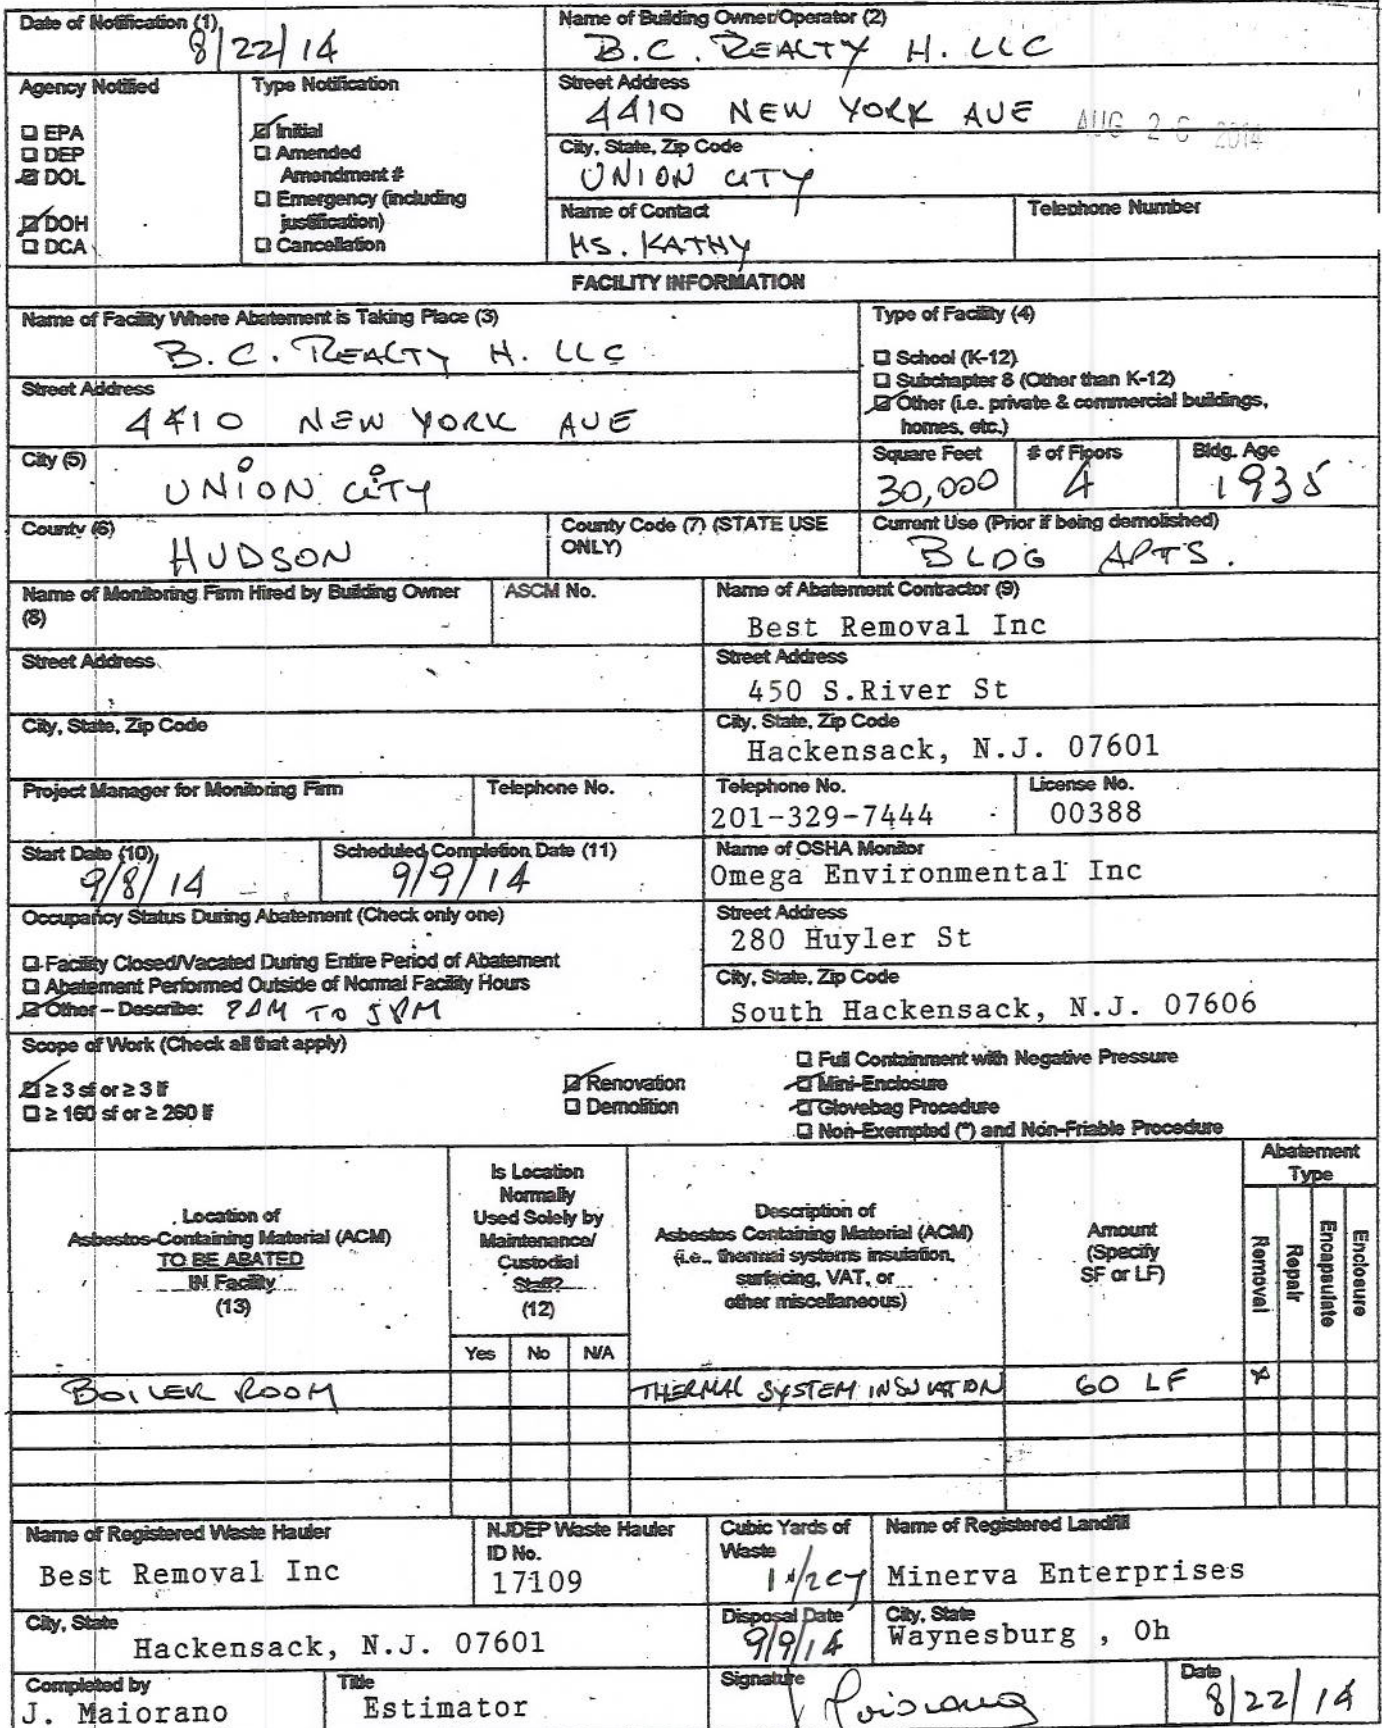 Date of Notification (1)
8/22/14
Name of Building Owner/Operator (2)
B.C. REALTY H. LLC
Agency Notified
☐ EPA
☐ DEP
☑ DOL
☑ DOH
☐ DCA
Type Notification
☑ Initial
☐ Amended
Amendment #
☐ Emergency (including
justification)
☐ Cancellation
Street Address
4410 NEW YORK AVE
AUG 26 2014
City, State, Zip Code
UNION CITY
Name of Contact
MS. KATHY
Telephone Number
FACILITY INFORMATION
Name of Facility Where Abatement is Taking Place (3)
B.C. REALTY H. LLC
Street Address
4410 NEW YORK AVE
Type of Facility (4)
☐ School (K-12)
☐ Subchapter 8 (Other than K-12)
☑ Other (i.e. private & commercial buildings,
homes, etc.)
City (5)
UNION CITY
Square Feet
30,000
# of Floors
4
Bldg. Age
1935
County (6)
HUDSON
County Code (7) (STATE USE
ONLY)
Current Use (Prior if being demolished)
BLDG APTS.
Name of Monitoring Firm Hired by Building Owner
(8)
ASCM No.
Name of Abatement Contractor (9)
Best Removal Inc
Street Address
Street Address
450 S.River St
City, State, Zip Code
City, State, Zip Code
Hackensack, N.J. 07601
Project Manager for Monitoring Firm
Telephone No.
Telephone No.
201-329-7444
License No.
00388
Start Date (10)
9/8/14
Scheduled Completion Date (11)
9/9/14
Name of OSHA Monitor
Omega Environmental Inc
Occupancy Status During Abatement (Check only one)
☐ Facility Closed/Vacated During Entire Period of Abatement
☐ Abatement Performed Outside of Normal Facility Hours
☑ Other – Describe: AM TO 5PM
Street Address
280 Huyler St
City, State, Zip Code
South Hackensack, N.J. 07606
Scope of Work (Check all that apply)
☑ ≥ 3 sf or ≥ 3 lf
☐ ≥ 160 sf or ≥ 260 lf
☑ Renovation
☐ Demolition
☐ Full Containment with Negative Pressure
☑ Mini-Enclosure
☑ Glovebag Procedure
☐ Non-Exempted (*) and Non-Friable Procedure
Location of
Asbestos-Containing Material (ACM)
TO BE ABATED
IN Facility
(13)
Is Location
Normally
Used Solely by
Maintenance/
Custodial
Staff?
(12)
Yes No N/A
Description of
Asbestos Containing Material (ACM)
(i.e., thermal systems insulation,
surfacing, VAT, or
other miscellaneous)
Amount
(Specify
SF or LF)
Abatement
Type
Removal
Repair
Encapsulate
Enclosure
BOILER ROOM THERMAL SYSTEM INSULATION 60 LF X
Name of Registered Waste Hauler
Best Removal Inc
NJDEP Waste Hauler
ID No.
17109
Cubic Yards of
Waste
1 1/2 CY
Name of Registered Landfill
Minerva Enterprises
City, State
Hackensack, N.J. 07601
Disposal Date
9/9/14
City, State
Waynesburg , Oh
Completed by
J. Maiorano
Title
Estimator
Signature
Date
8/22/14